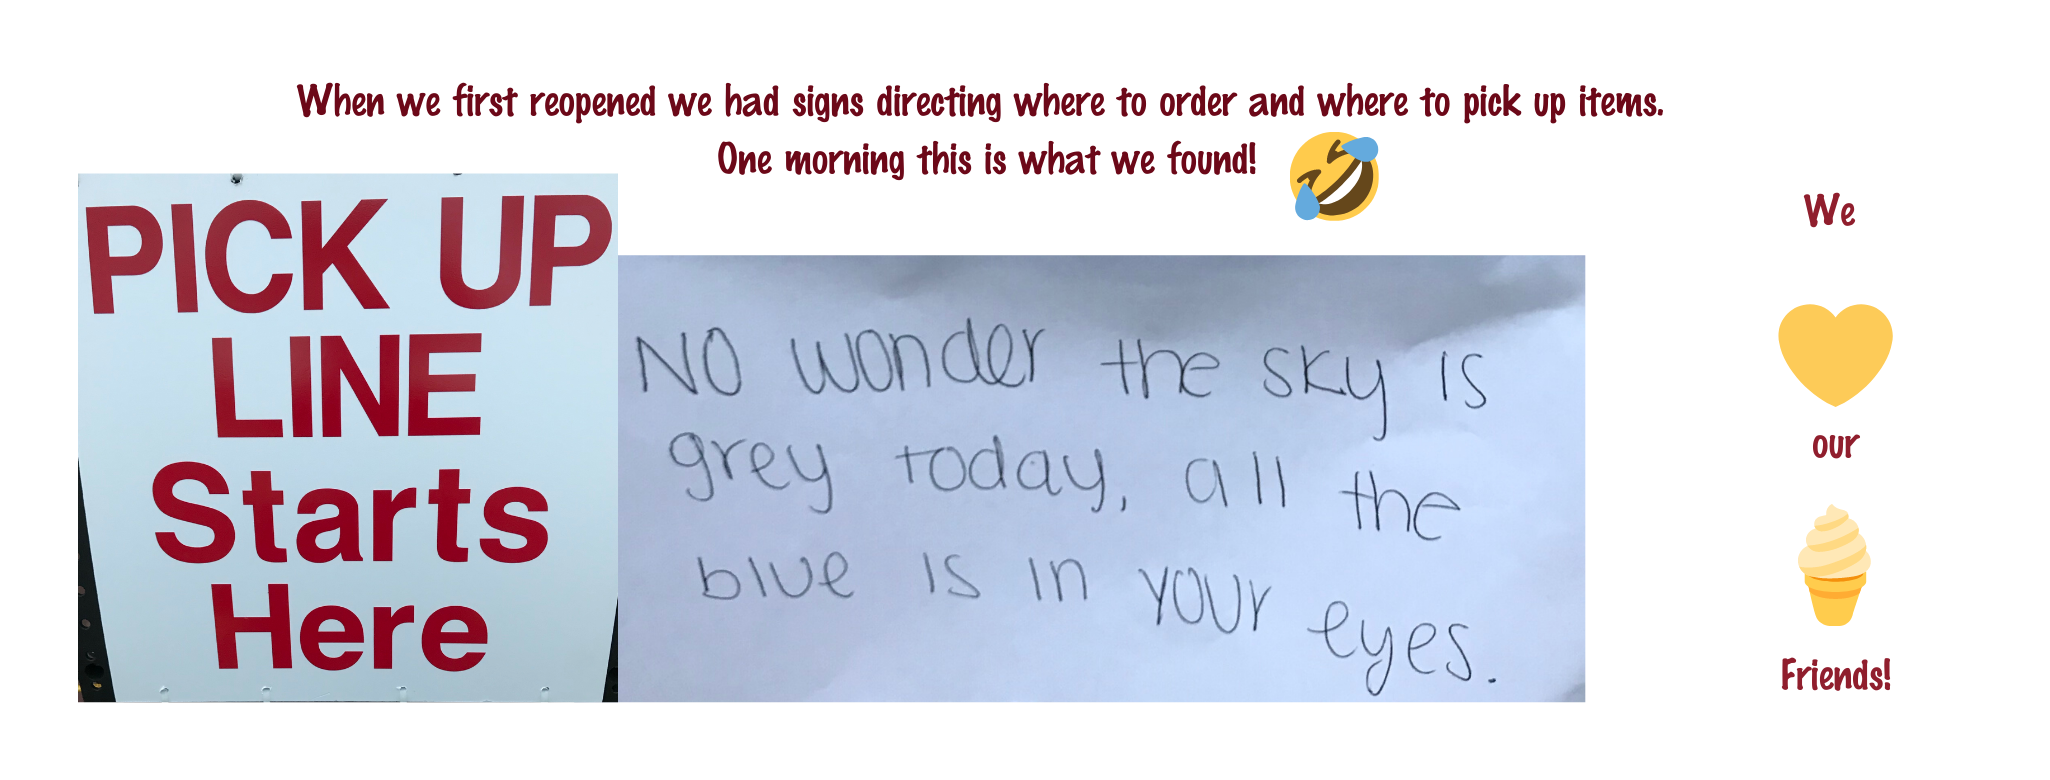 When we first reopened we had signs directing where to order and where to pick up items.
One morning this is what we found!
PICK UP
LINE
Starts
Here
NO wonder the sky is
grey today, all the
blue is in your eyes.
We
our
Friends!